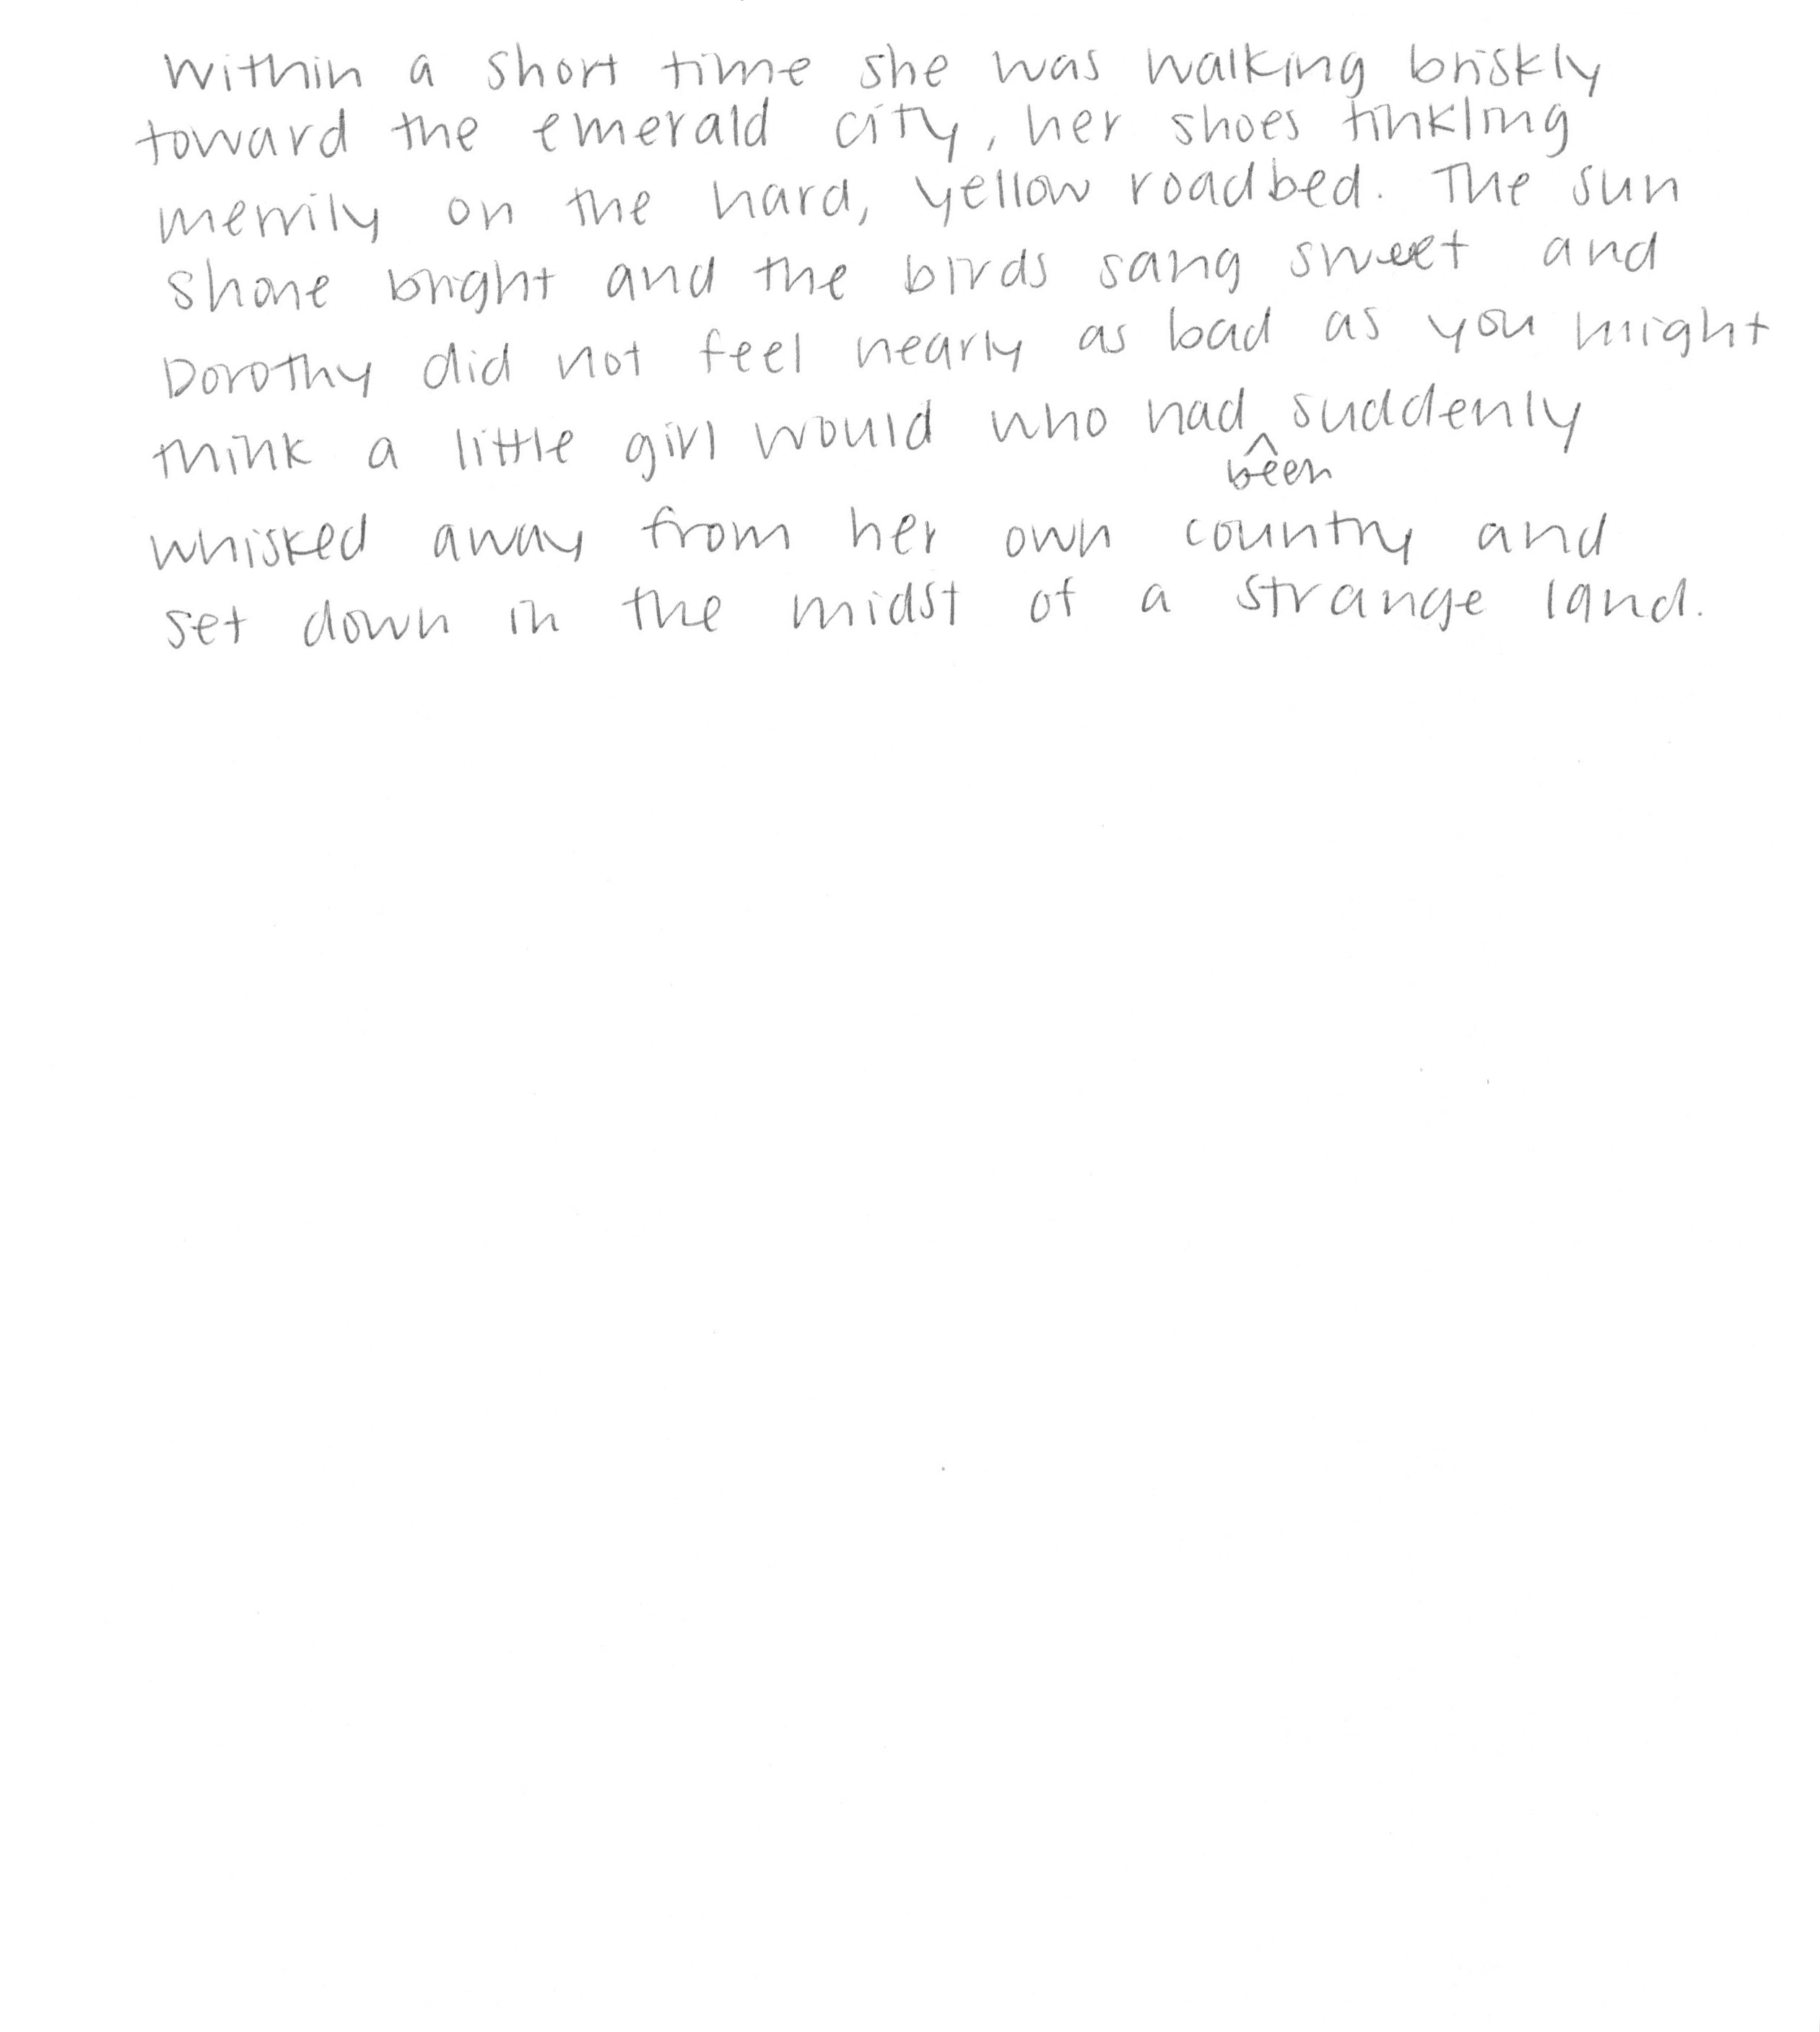 Within a short time she was walking briskly
toward the emerald city, her shoes tinkling
merrily on the hard, yellow roadbed. The sun
shone bright and the birds sang sweet and
Dorothy did not feel nearly as bad as you might
think a little girl would who had ^ suddenly
been
whisked away from her own country and
set down in the midst of a strange land.